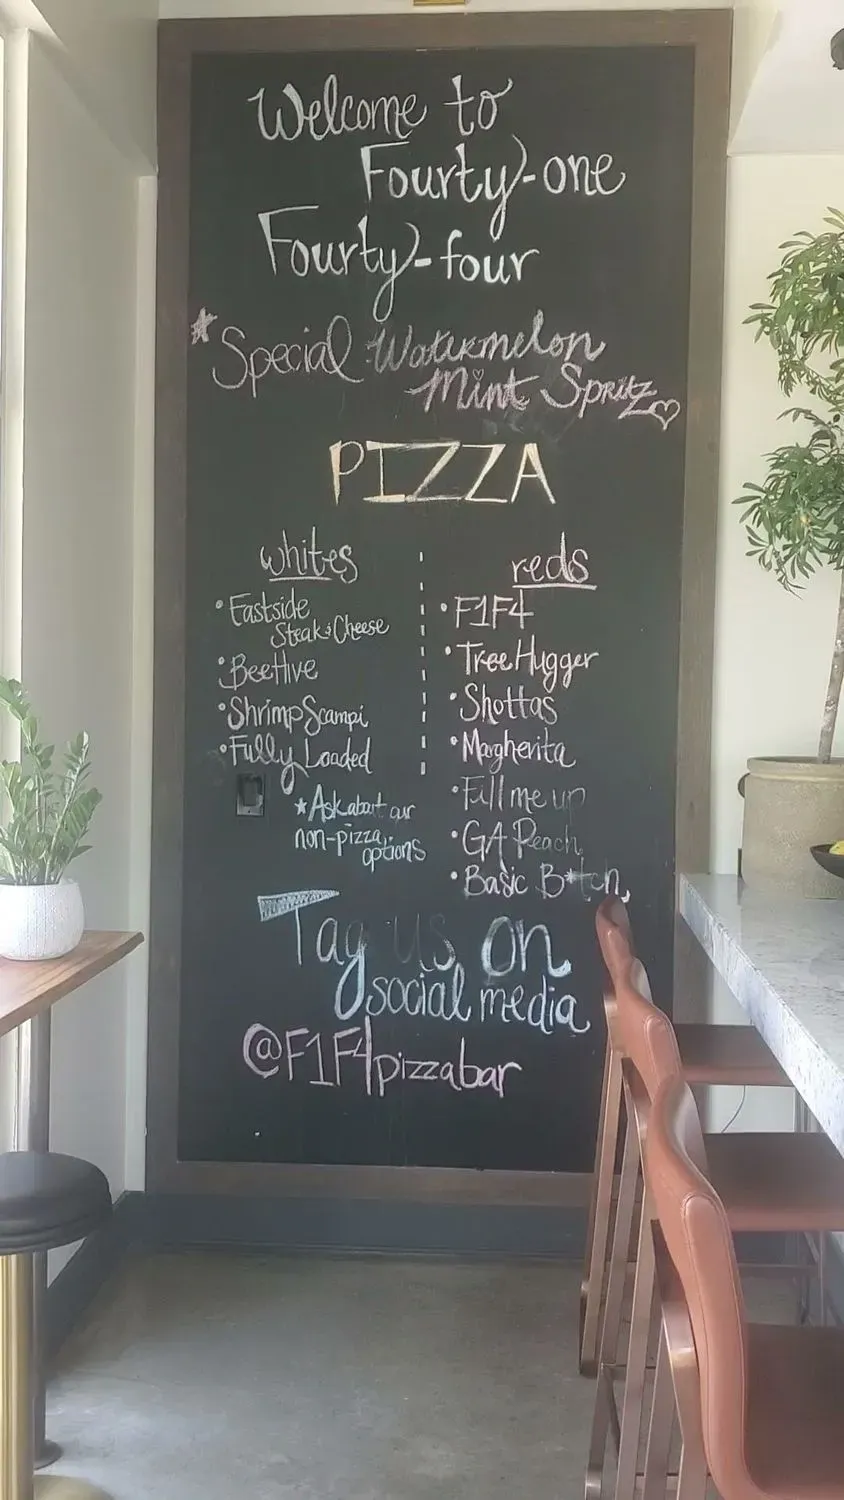 Welcome to
Fourty-one
Fourty-four
*Special Watermelon
Mint Spritz♡
PIZZA
whites
• Eastside
Steak & Cheese
• BeeHive
• Shrimp Scampi
• Fully Loaded
*Ask about our
non-pizza
options
reds
• F1F4
• Tree Hugger
• Shottas
• Margherita
• Fill me up
• GA Peach
• Basic B*tch
Tag us on
social media
@F1F4pizzabar